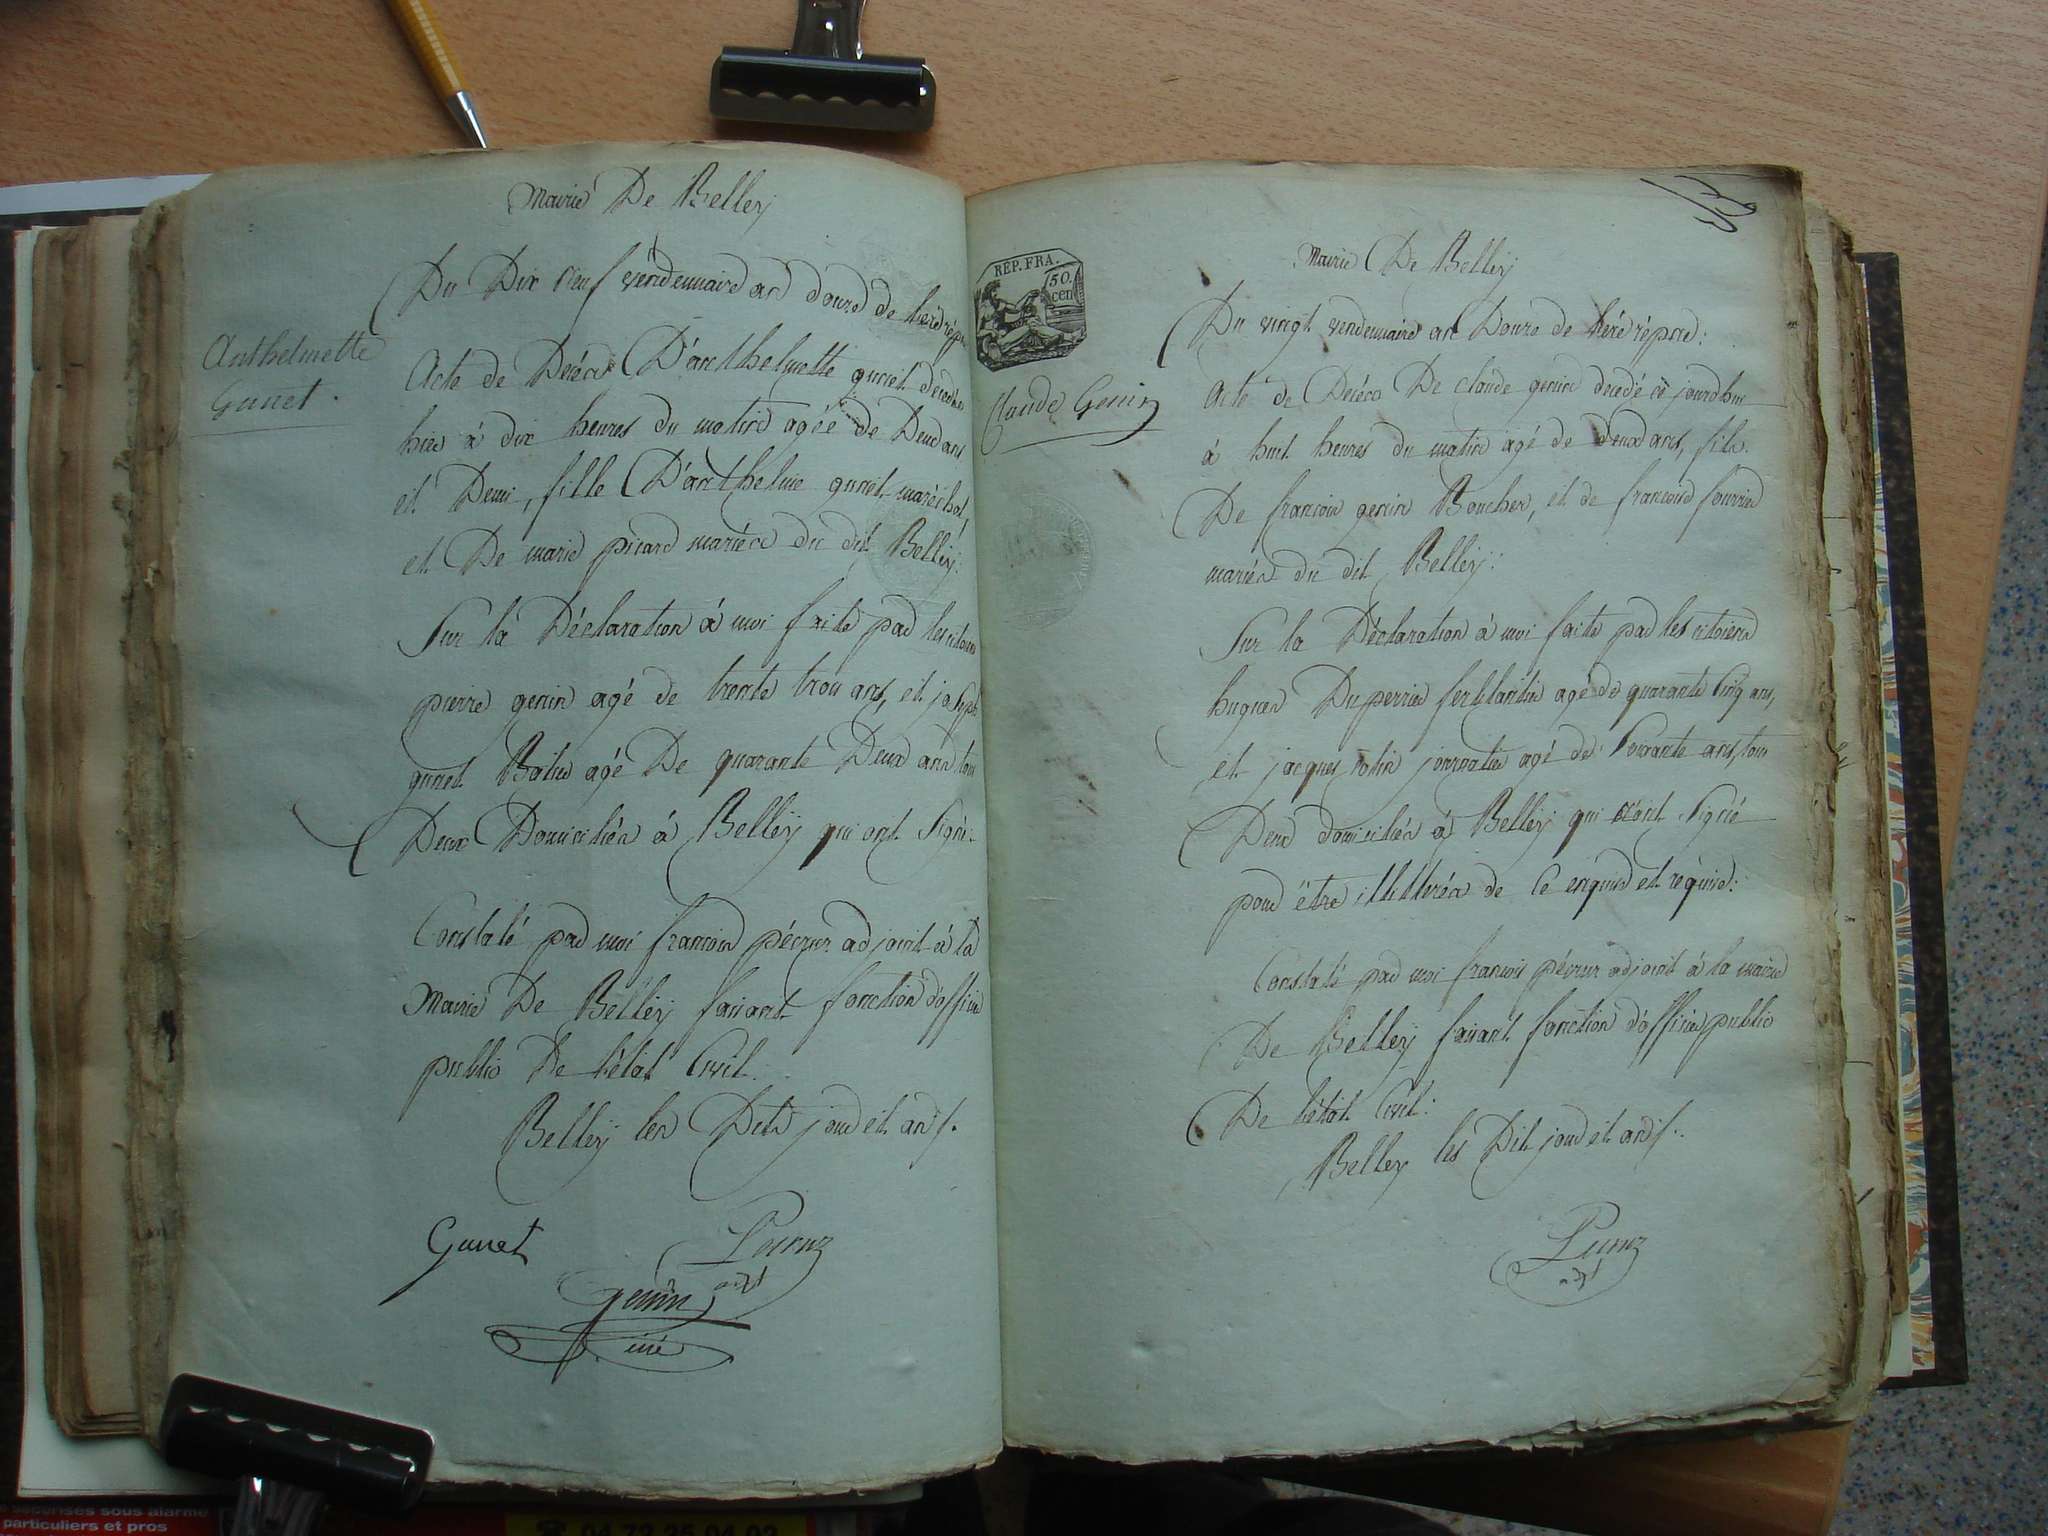 Mairie De Belleÿ
Du Dix neuf vendemiaire an douze de l'ere répu
Anthelmette
Gunet.
Acte de Décés D'anthelmette gunet decedée
hier à dix heures du matin agée de Deux ans
et Demi, fille D'anthelme gunet maréchal,
et De marie picard mariés du dit Belleÿ:
Sur la Déclaration à moi faite par les citoiens
pierre genin agé de trente trois ans, et joseph
gunet agé De quarante Deux ans tous
Deux Domiciliés à Belleÿ qui ont Signé:
Constaté par moi francois pécruz adjoint à la
Mairie De Belleÿ faisant fonction d'officier
public De l'état Civil.
Belleÿ les Dits jour et an
Gunet
Pecruz
adjt
Genin
53
Mairie De Belleÿ
REP. FRA.
50.
cen
Du vingt vendemiaire an Douze de l'ere répre:
Claude Genin
Acte de Décés De claude genin decedé ce jourdhui
à huit heures du matin agé de deux ans, fils
De francois genin Boucher, et de francoise fourrier
mariés du dit Belleÿ:
Sur la Déclaration à moi faite par les citoiens
hugues Duperrier ferblantier agé de quarante Cinq ans,
et jacques rolin journalier agé de Soixante ans, tous
Deux domiciliés à Belleÿ qui n'ont Signé
pour être illitterés de Ce enquis et requis:
Constaté par moi francois pécruz adjoint à la mairie
De Belleÿ faisant fonction d'officier public
De l'état Civil:
Belley les Dit jour et an
Pecruz
adjt
sécurisés sous alarme
particuliers et pros
04 79 25 04 02